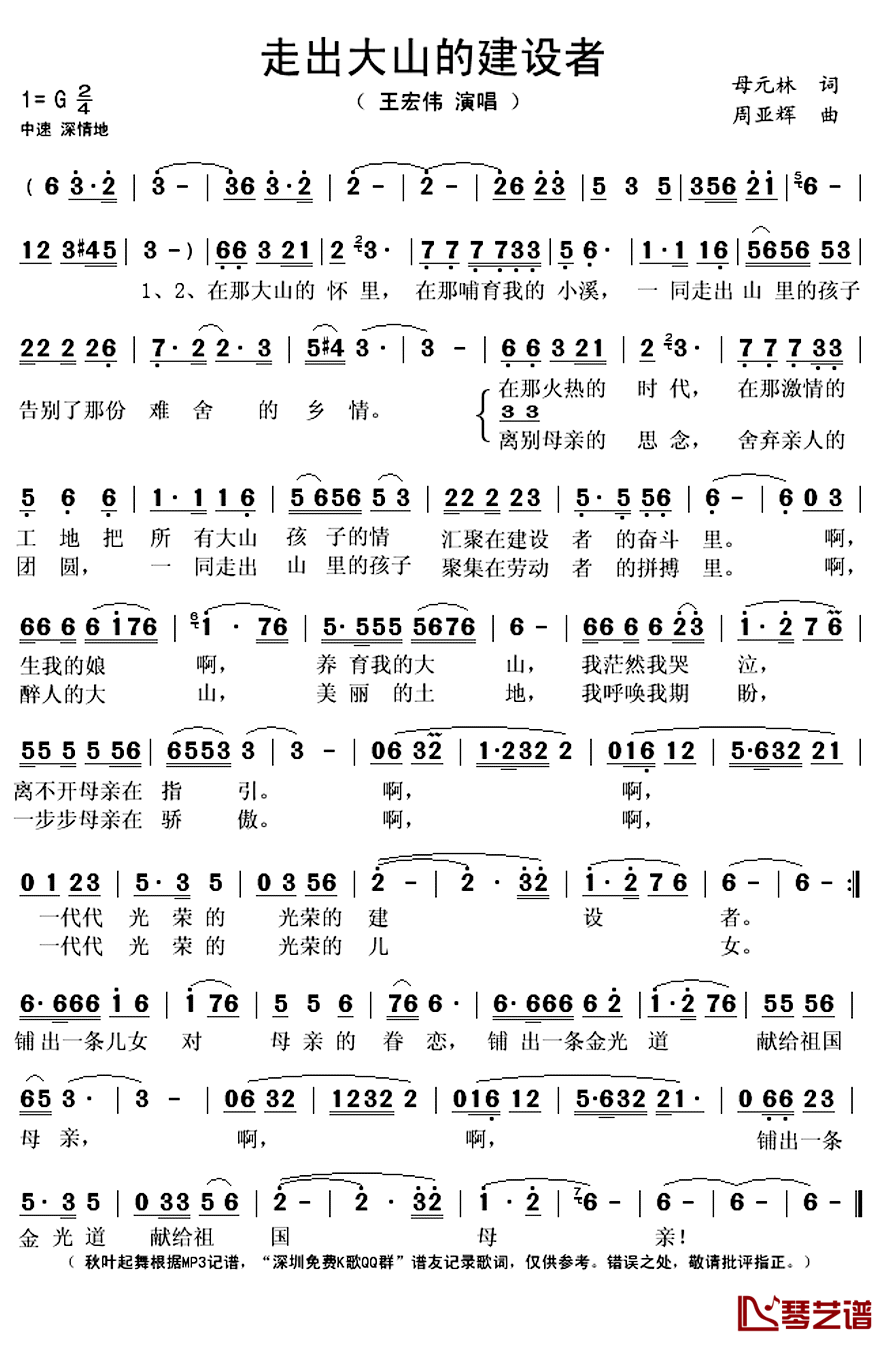 走出大山的建设者
1= G 2/4
（ 王宏伟 演唱 ）
母元林 词
中速 深情地
周亚辉 曲
( 6 3·2 | 3 - | 36 3·2 | 2 - | 2 - | 26 23 | 5 3 5 | 356 21 | 5 6 - |
12 3#45 | 3 - ) | 66 3 21 | 2 2 3· | 7 7 7 733 | 5 6· | 1·1 16 | 5656 53 |
1、2、在那大山的 怀 里， 在那哺育我的 小溪， 一 同走出 山 里的孩子
22 2 26 | 7· 2 2·3 | 5#4 3· | 3 - | 6 6 3 21 | 2 2 3· | 7 7 7 33 |
在那火热的 时 代， 在那激情的
告别了那份 难 舍 的 乡 情。
3 3
离别母亲的 思 念， 舍弃亲人的
5 6 6 | 1·1 1 6 | 5 656 5 3 | 22 2 23 | 5·5 56 | 6 - | 6 0 3 |
工 地 把 所 有大山 孩 子的情 汇聚在建设 者 的奋斗 里。 啊，
团 圆， 一 同走出 山 里的孩子 聚集在劳动 者 的拼搏 里。 啊，
66 6 6 176 | 6 1 · 76 | 5·555 5676 | 6 - | 66 6 6 23 | 1·2 7 6 |
生我的娘 啊， 养 育我的大 山， 我茫然我哭 泣，
醉人的大 山， 美 丽 的土 地， 我呼唤我期 盼，
55 5 5 56 | 6553 3 | 3 - | 06 32 | 1·232 2 | 016 12 | 5·632 21 |
离不开母亲在 指 引。 啊， 啊，
一步步母亲在 骄 傲。 啊， 啊，
0 1 23 | 5·3 5 | 0 3 56 | 2 - | 2 · 32 | 1·2 7 6 | 6 - | 6 - :‖
一代代 光 荣 的 光荣的 建 设 者。
一代代 光 荣 的 光荣的 儿 女。
6·666 1 6 | 1 76 | 5 5 6 | 76 6· | 6·666 6 2 | 1·2 76 | 55 56 |
铺 出一条儿女 对 母 亲 的 眷 恋， 铺 出一条金光 道 献给祖国
65 3· | 3 - | 06 32 | 1232 2 | 016 12 | 5·632 21· | 0 66 23 |
母 亲， 啊， 啊， 铺出一条
5·3 5 | 0 33 5 6 | 2 - | 2 · 32 | 1·2 | 7 6 - | 6 - | 6 - ‖
金 光 道 献给祖 国 母 亲！
（ 秋叶起舞根据MP3记谱，“深圳免费K歌QQ群”谱友记录歌词，仅供参考。错误之处，敬请批评指正。）
琴艺谱